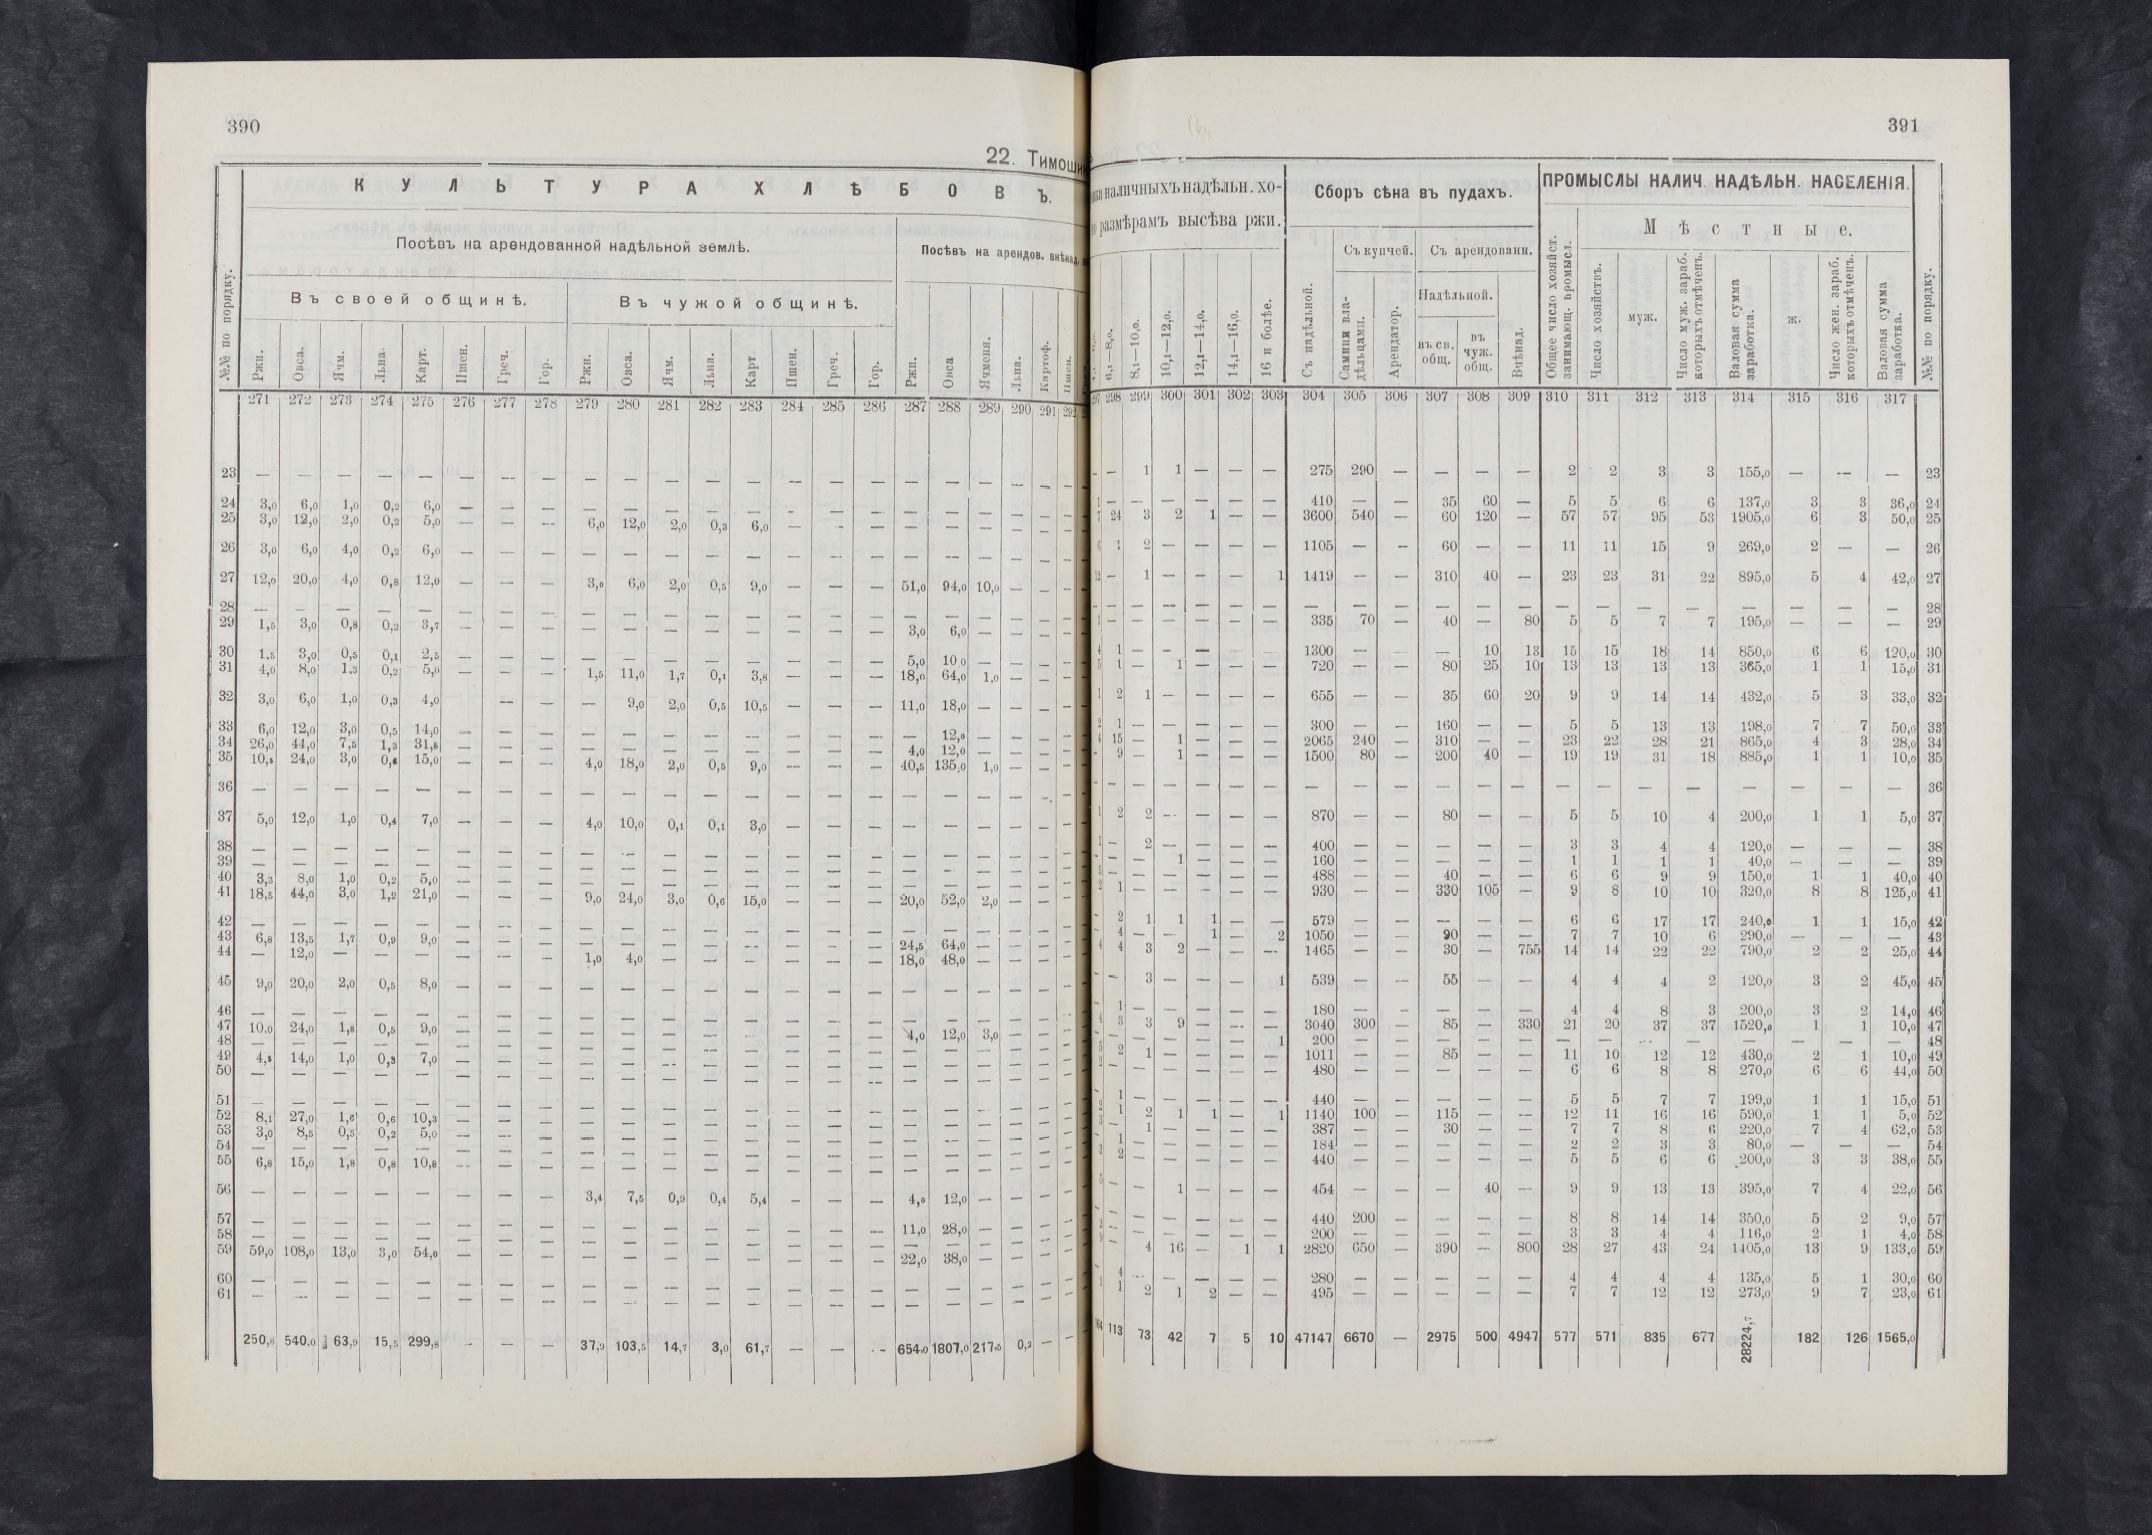 390
22. Тимоши
К У Л Ь Т У Р А Х Л Ѣ Б О В Ъ.
Посѣвъ на арендованной надѣльной землѣ.
Посѣвъ на арендов. внѣнад.
Въ своей общинѣ.
Въ чужой общинѣ.
№№ по порядку.
Ржи. Овса. Ячм. Льна. Карт. Пшен. Греч. Гор. Ржи. Овса. Ячм. Льна. Карт Пшен. Греч. Гор. Ржи. Овса Ячменя. Льна. Картоф. Пшен.
271 272 273 274 275 276 277 278 279 280 281 282 283 284 285 286 287 288 289 290 291 292
23 — — — — — — — — — — — — — — — — — — — — — —
24 3,0 6,0 1,0 0,2 6,0 — — — — — — — — — — — — — — — — —
25 3,0 12,0 2,0 0,2 5,0 — — — 6,0 12,0 2,0 0,3 6,0 — — — — — — — — —
26 3,0 6,0 4,0 0,2 6,0 — — — — — — — — — — — — — — — — —
27 12,0 20,0 4,0 0,8 12,0 — — — 3,0 6,0 2,0 0,5 9,0 — — — 51,0 94,0 10,0 — — —
28 — — — — — — — — — — — — — — — — — — — — — —
29 1,5 3,0 0,8 0,2 3,7 — — — — — — — — — — — 3,0 6,0 — — — —
30 1,5 3,0 0,5 0,1 2,5 — — — — — — — — — — — 5,0 10 0 — — — —
31 4,0 8,0 1,3 0,2 5,0 — — — 1,5 11,0 1,7 0,1 3,8 — — — 18,0 64,0 1,0 — — —
32 3,0 6,0 1,0 0,3 4,0 — — — 9,0 2,0 0,5 10,5 — — — 11,0 18,0 — — — —
33 6,0 12,0 3,0 0,5 14,0 — — — — — — — — — — — — 12,0 — — — —
34 26,0 44,0 7,5 1,3 31,5 — — — — — — — — — — — 4,0 12,0 — — — —
35 10,5 24,0 3,0 15,0 — — — 4,0 18,0 2,0 0,5 9,0 — — — 40,5 135,0 1,0 — — —
36 — — — — — — — — — — — — — — — — — — — — — —
37 5,0 12,0 1,0 0,4 7,0 — — — 4,0 10,0 0,1 0,1 3,0 — — — — — — — — —
38 — — — — — — — — — — — — — — — — — — — — — —
39 — — — — — — — — — — — — — — — — — — — — — —
40 3,3 8,0 1,0 0,2 5,0 — — — — — — — — — — — — — — — — —
41 18,5 44,0 3,0 1,2 21,0 — — — 9,0 24,0 3,0 0,6 15,0 — — — 20,0 52,0 2,0 — — —
42 — — — — — — — — — — — — — — — — — — — — — —
43 6,8 13,5 1,7 0,9 9,0 — — — — — — — — — — — 24,5 64,0 — — — —
44 — 12,0 — — — — — — 1,0 4,0 — — — — — — 18,0 48,0 — — — —
45 9,0 20,0 2,0 0,5 8,0 — — — — — — — — — — — — — — — — —
46 — — — — — — — — — — — — — — — — — — — — — —
47 10,0 24,0 1,8 0,5 9,0 — — — — — — — — — — — 4,0 12,0 3,0 — — —
48 — — — — — — — — — — — — — — — — — — — — — —
49 4,5 14,0 1,0 0,3 7,0 — — — — — — — — — — — — — — — — —
50 — — — — — — — — — — — — — — — — — — — — — —
51 — — — — — — — — — — — — — — — — — — — — — —
52 8,1 27,0 1,6 0,6 10,3 — — — — — — — — — — — — — — — — —
53 3,0 8,5 0,5 0,2 5,0 — — — — — — — — — — — — — — — — —
54 — — — — — — — — — — — — — — — — — — — — — —
55 6,8 15,0 1,8 0,8 10,8 — — — — — — — — — — — — — — — — —
56 — — — — — — — — 3,4 7,5 0,9 0,4 5,4 — — — 4,0 12,0 — — — —
57 — — — — — — — — — — — — — — — — 11,0 28,0 — — — —
58 — — — — — — — — — — — — — — — — — — — — — —
59 59,0 108,0 13,0 3,0 54,0 — — — — — — — — — — — 22,0 38,0 — — — —
60 — — — — — — — — — — — — — — — — — — — — — —
61 — — — — — — — — — — — — — — — — — — — — — —
250,8 540,0 63,9 15,5 299,8 - — — 37,9 103,5 14,7 3,0 61,7 — — — 654,0 1807,0 217,5 0,2 — —
391
наличныхъ надѣльн. хо-
размѣрамъ высѣва ржи.
Сборъ сѣна въ пудахъ.
ПРОМЫСЛЫ НАЛИЧ. НАДѢЛЬН. НАСЕЛЕНІЯ.
М ѣ с т н ы е.
Съ купчей. Съ арендованн.
Надѣльной.
6,1—8,0. 8,1—10,0. 10,1—12,0. 12,1—14,0. 14,1—16,0. 16 и болѣе. Съ надѣльной. Самими вла-дѣльцами. Арендатор. въ св. общ. въ чуж. общ. Внѣнад. Общее число хозяйст. занимающ. промысл. Число хозяйствъ. муж. Число муж. зараб. которыхъ отмѣченъ. Валовая сумма заработка. ж. Число жен. зараб. которыхъ отмѣченъ. Валовая сумма заработка. №№ по порядку.
298 299 300 301 302 303 304 305 306 307 308 309 310 311 312 313 314 315 316 317
— — 1 1 — — — 275 290 — — — — 2 2 3 3 155,0 — — — 23
1 — — — — — — 410 — — 35 60 — 5 5 6 6 137,0 3 3 36,0 24
7 24 3 2 1 — — 3600 540 — 60 120 — 57 57 95 53 1905,0 6 3 50,0 25
6 1 2 — — — — 1105 — — 60 — — 11 11 15 9 269,0 2 — — 26
12 — 1 — — — 1 1419 — — 310 40 — 23 23 31 22 895,0 5 4 42,0 27
— — — — — — — — — — — — — — — — — — — — — 28
1 — — — — — — 335 70 — 40 — 80 5 5 7 7 195,0 — — — 29
4 1 — — — — — 1300 — — — 10 13 15 15 18 14 850,0 6 6 120,0 30
5 1 — 1 — — — 720 — — 80 25 10 13 13 13 13 365,0 1 1 15,0 31
1 2 1 — — — — 655 — — 35 60 20 9 9 14 14 432,0 5 3 33,0 32
2 1 — — — — — 300 — — 160 — — 5 5 13 13 198,0 7 7 50,0 33
4 15 — 1 — — — 2065 240 — 310 — — 23 22 28 21 865,0 4 3 28,0 34
— 9 — 1 — — — 1500 80 — 200 40 — 19 19 31 18 885,0 1 1 10,0 35
— — — — — — — — — — — — — — — — — — — — — 36
1 2 2 — — — — 870 — — 80 — — 5 5 10 4 200,0 1 1 5,0 37
1 — 2 — — — — 400 — — — — — 3 3 4 4 120,0 — — — 38
— — — 1 — — — 160 — — — — — 1 1 1 1 40,0 — — — 39
5 — — — — — — 488 — — 40 — — 6 6 9 9 150,0 1 1 40,0 40
2 1 — — — — — 930 — — 330 105 — 9 8 10 10 320,0 8 8 125,0 41
— 2 1 1 1 — — 579 — — — — — 6 6 17 17 240,0 1 1 15,0 42
— 4 — — 1 — 2 1050 — — 90 — — 7 7 10 6 290,0 — — — 43
4 4 3 2 — — — 1465 — — 30 — 755 14 14 22 22 790,0 2 2 25,0 44
— — 3 — — — 1 539 — — 55 — — 4 4 4 2 120,0 3 2 45,0 45
— 1 — — — — — 180 — — — — — 4 4 8 3 200,0 3 2 14,0 46
4 3 3 9 — — — 3040 300 — 85 — 330 21 20 37 37 1520,0 1 1 10,0 47
— — — — — — 1 200 — — — — — — — — — — — — — 48
5 2 1 — — — — 1011 — — 85 — — 11 10 12 12 430,0 2 1 10,0 49
2 — — — — — — 480 — — — — — 6 6 8 8 270,0 6 6 44,0 50
— 1 — — — — — 440 — — — — — 5 5 7 7 199,0 1 1 15,0 51
2 1 2 1 1 — 1 1140 100 — 115 — — 12 11 16 16 590,0 1 1 5,0 52
3 — 1 — — — — 387 — — 30 — — 7 7 8 6 220,0 7 4 62,0 53
— 1 — — — — — 184 — — — — — 2 2 3 3 80,0 — — — 54
3 2 — — — — — 440 — — — — — 5 5 6 6 200,0 3 3 38,0 55
5 — — 1 — — — 454 — — — 40 — 9 9 13 13 395,0 7 4 22,0 56
— — — — — — 440 200 — — — — 8 8 14 14 350,0 5 2 9,0 57
— — — — — — 200 — — — — — 3 3 4 4 116,0 2 1 4,0 58
— 4 16 — 1 1 2820 650 — 390 — 800 28 27 43 24 1405,0 13 9 133,0 59
4 — — — — — 280 — — — — — 4 4 4 4 135,0 5 1 30,0 60
1 1 2 1 2 — — 495 — — — — — 7 7 12 12 273,0 9 7 23,0 61
113 73 42 7 5 10 47147 6670 — 2975 500 4947 577 571 835 677 28224,7 182 126 1565,0